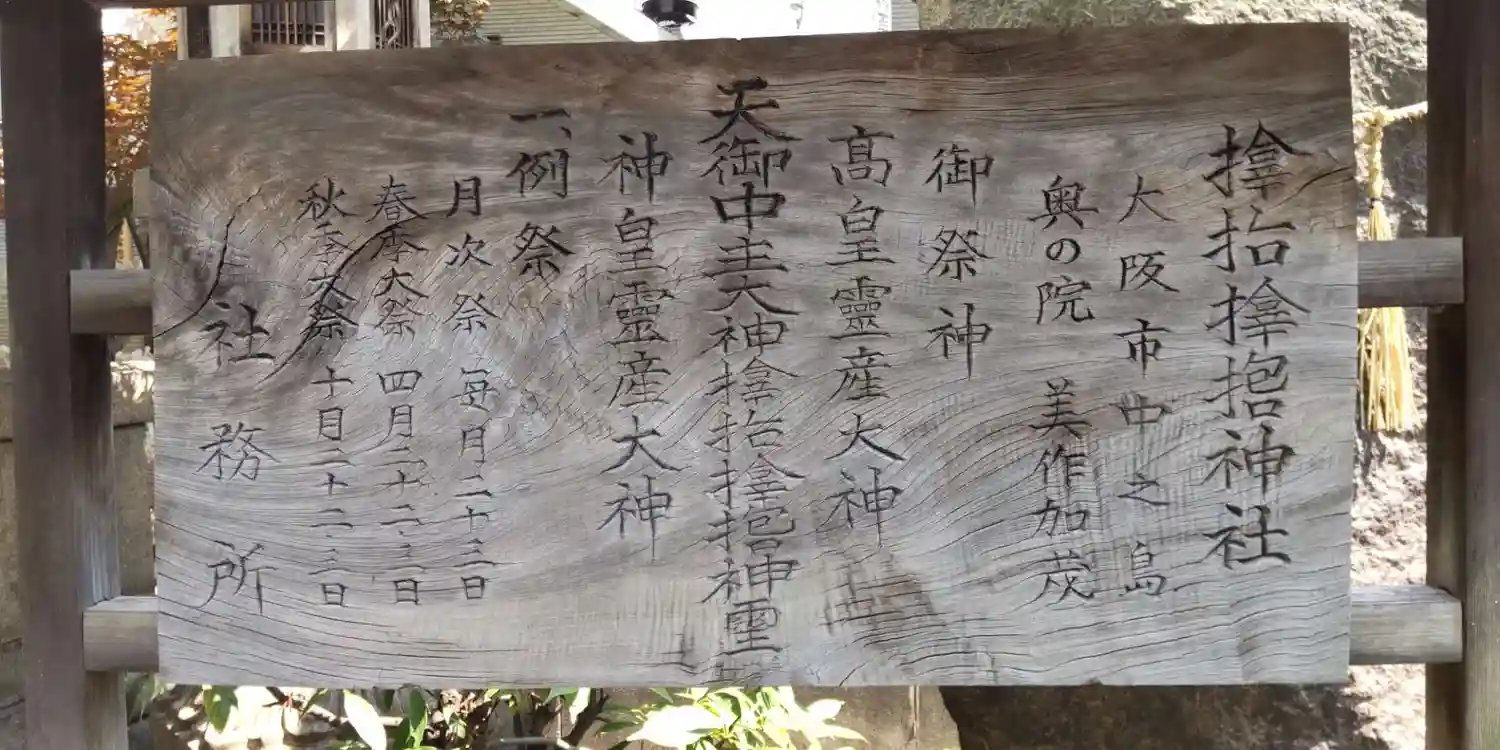 𪮷抬𪮷𫝼神社
大阪市中之島
奥の院 美作加茂
御祭神
髙皇靈産大神
天御中主大神𪮷抬𪮷𫝼神霊
神皇靈産大神
一、例祭
月次祭 毎月二十三日
春季大祭 四月二十二、三日
秋季大祭 十月二十二、三日
社務所